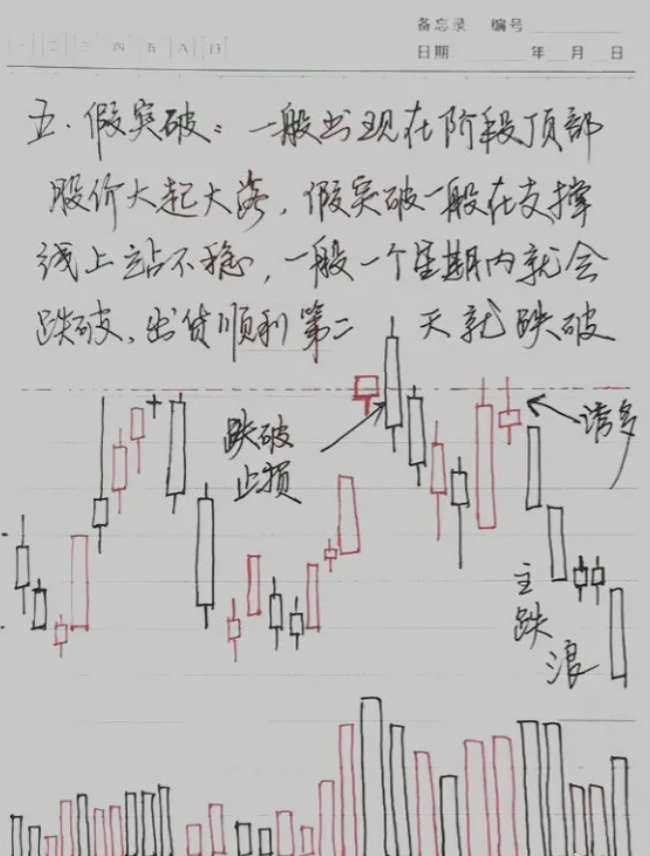 备忘录 编号
一 二 三 四 五 六 日
日期 年 月 日
五.假突破:一般出现在阶段顶部
股价大起大落,假突破一般在支撑
线上站不稳,一般一个星期内就会
跌破,出货顺利第二 天就跌破
跌破
止损
诱多
主
跌
浪